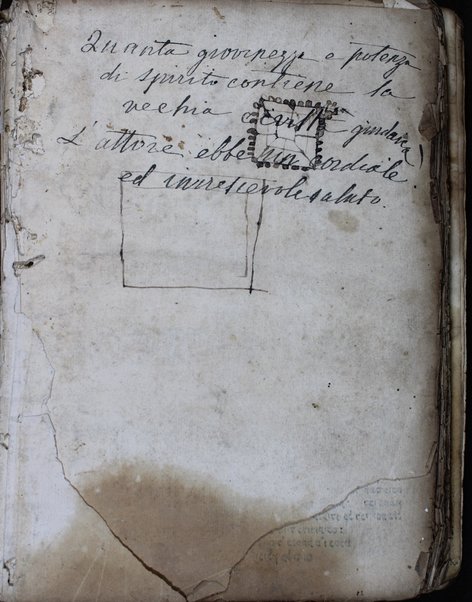 Quanta giovinezza e potenza
di spirito contiene la
vechia civiltà giudaica!
L'attore ebbe un cordiale
ed increscevole saluto.